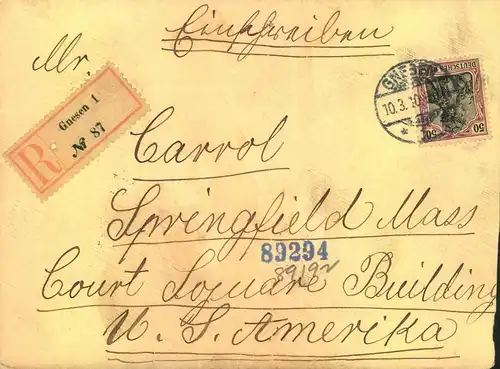 Einschreiben
Mr.
Carrol
Springfield Mass
Court Square Building
U. S. Amerika
R
Gnesen 1
№ 87
89294
GNESEN
10.3.10
DEUTSCHES
50 50